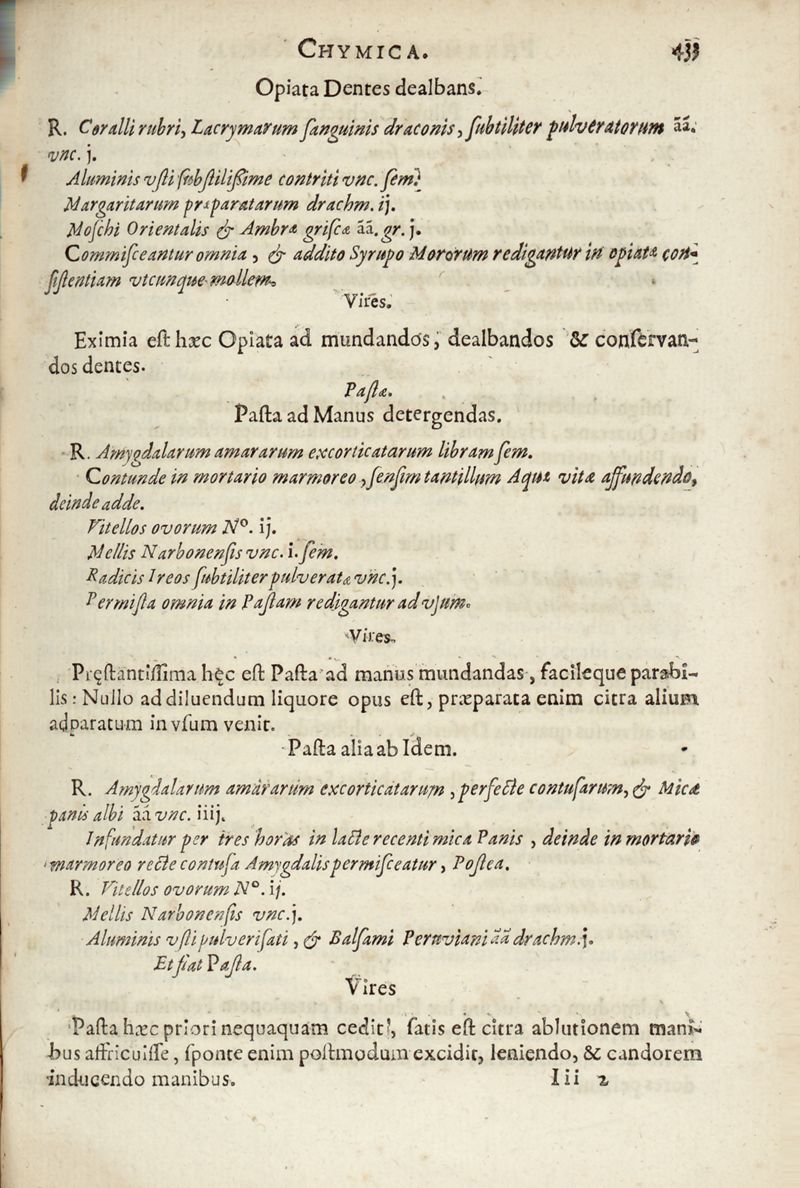 CHYMICA. 435
Opiata Dentes dealbans.
R. Coralli rubri, Lacrymarum ſanguinis draconis, ſubtiliter pulveratorum āā.
vnc. j.
Aluminis vſti ſubſtiliſſime contriti vnc. ſem.
Margaritarum præparatarum drachm. ij.
Moſchi Orientalis & Ambræ griſeæ āā. gr. j.
Commiſceantur omnia, & addito Syrupo Mororum redigantur in opiatæ con-
ſiſtentiam vtcunque mollem.
Vires.
Eximia eſt hæc Opiata ad mundandos, dealbandos & conſervan-
dos dentes.
Paſtæ.
Paſta ad Manus detergendas.
R. Amygdalarum amararum excorticatarum libram ſem.
Contunde in mortario marmoreo, ſenſim tantillum Aquæ vitæ affundendo,
deinde adde.
Vitellos ovorum N°. ij.
Mellis Narbonenſis vnc. i. ſem.
Radicis Ireos ſubtiliter pulveratæ vnc. j.
Permiſta omnia in Paſtam redigantur ad vſum.
Vires.
Pręſtantiſſima hęc eſt Paſta ad manus mundandas, facileque parabi-
lis: Nullo ad diluendum liquore opus eſt, præparata enim citra alium
adparatum in vſum venit.
Paſta alia ab Idem.
R. Amygdalarum amararum excorticatarum, perfecte contuſarum, & Micæ
panis albi āā vnc. iiij.
Infundatur per tres horas in lacte recenti mica Panis, deinde in mortario
marmoreo recte contuſa Amygdalis permiſceatur, Poſtea.
R. Vitellos ovorum N°. ij.
Mellis Narbonenſis vnc. j.
Aluminis vſti pulveriſati, & Balſami Peruviani āā drachm. j.
Et fiat Paſta.
Vires
Paſta hæc priori nequaquam cedit, ſatis eſt citra ablutionem mani-
bus affricuiſſe, ſponte enim poſtmodum excidit, leniendo, & candorem
inducendo manibus.
Iii 2